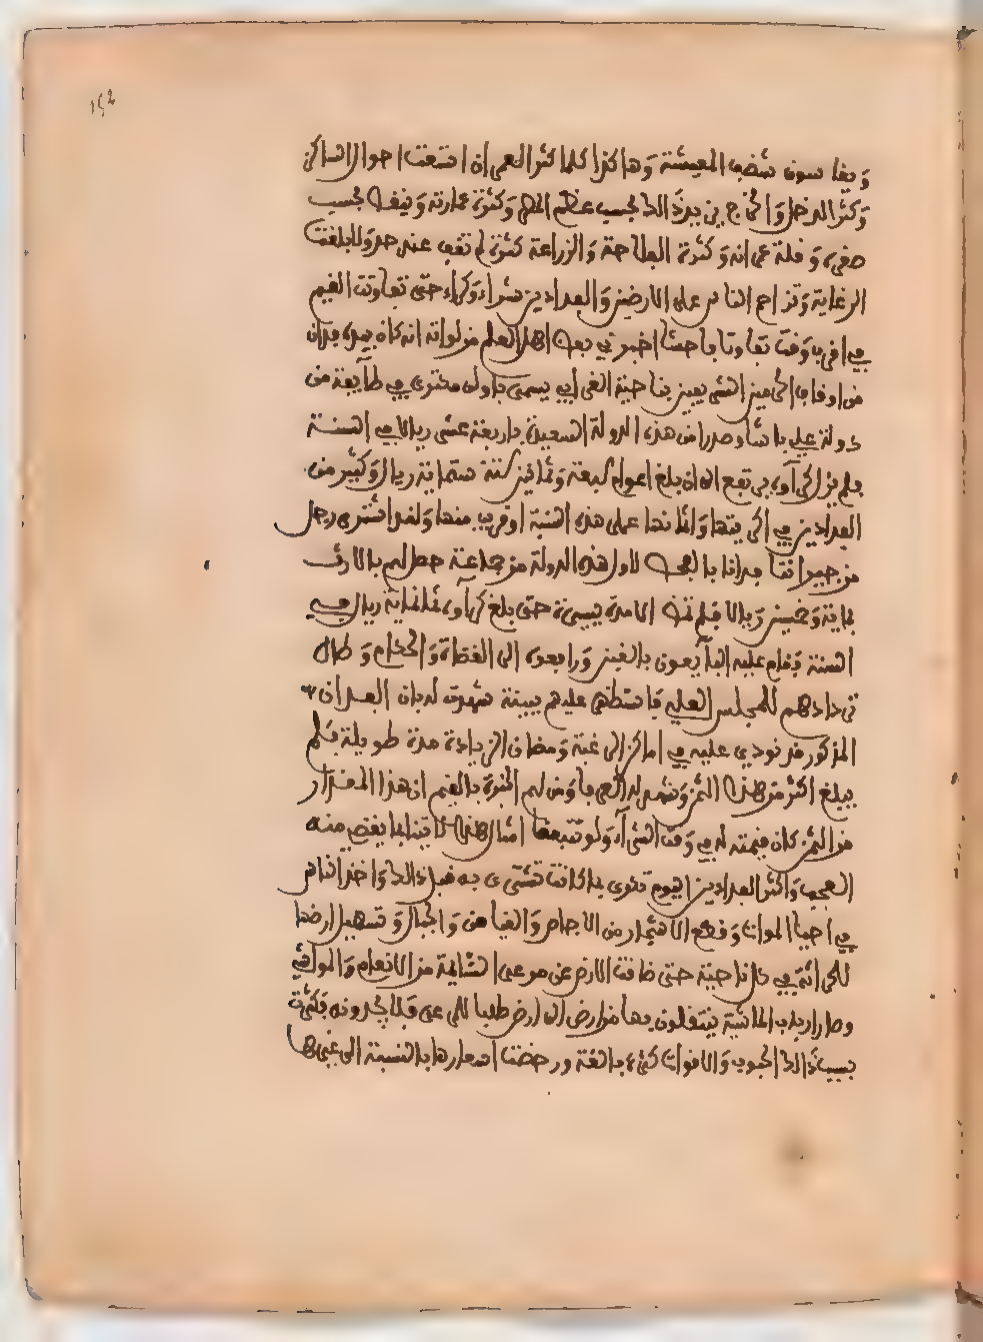 ويقاسون شضف المعيشة وهاكذا كلما كثر العمران اتسعت احوال الساكن
وكثر الدخل والخرج بين يدي ذالك بحسب عظم المصر وكثرة عمارته وينقص بحسب
صغره وقلة عمرانه وكثرة الفلاحة والزراعة كثرة لم تقف عند حد ولا بلغت
الى غاية وتزاحم الناس على الارضين والفدادين شراء وكراء حتى تفاوتت القيم
في اقرب وقت تفاوتا فاحشا اخبرني بعض اهل العلم من لواته انه كان بيده فدان
من اوقاف الحرمين الشريفين بناحية الغرابي يسمى
دولة علي باشا وصدرا من هذه الدولة السعيدة باربعة عشر ريالا في السنة
فلم يزل كراوه يرتفع الى ان بلغ اعوام سبعة وثمانين ستمائة ريال وكثير من
الفدادين في كريتها واثمانها على هذه النسبة او قريب منها ولقد اشترى رجل
من جيراننا فدانا بالجهة لاول هذه الدولة من جماعة حصل لهم بالارث
بماية وخمسين ريالا فلم تمض الا مدة يسيرة حتى بلغ كراوه ثلثماية ريال في
السنة فقام عليه البايعون بالغبن ورافعوه الى القضاة والحكام وطال
تردادهم للمجلس العلي فاستظهر عليهم ببينة شهدت له بان الفدان
المذكور قد نودي عليه في اماكن الرغبة ومظان الزيادة مدة طويلة فلم
يبلغ اكثر من هذا الثمن وشهد له العرفا ومن لهم الخبرة بالقيم ان هذا المقدار
من الثمن كان قيمته له في وقت الشراء ولو تتبعنا امثال هذا لاتينا بما يقضى منه
العجب واكثر الفدادين اليوم تكرى بما كانت تشترى به قبل ذالك واخذ الناس
في احيا الموات وقطع الاشجار من الاجام والغياض والجبال وتسهيل ارضها
للحراثة في كل ناحية حتى ضاقت الارض عن مرعى السائمة من الانعام والمواشي
وصار ارباب الماشية ينتقلون بها من ارض الى ارض طلبا للمرعى فلا يجدونه فكثرت
بسبب ذالك الحبوب والاقوات كثرة بالغة ورخصت اسعارها بالنسبة الى غيرها